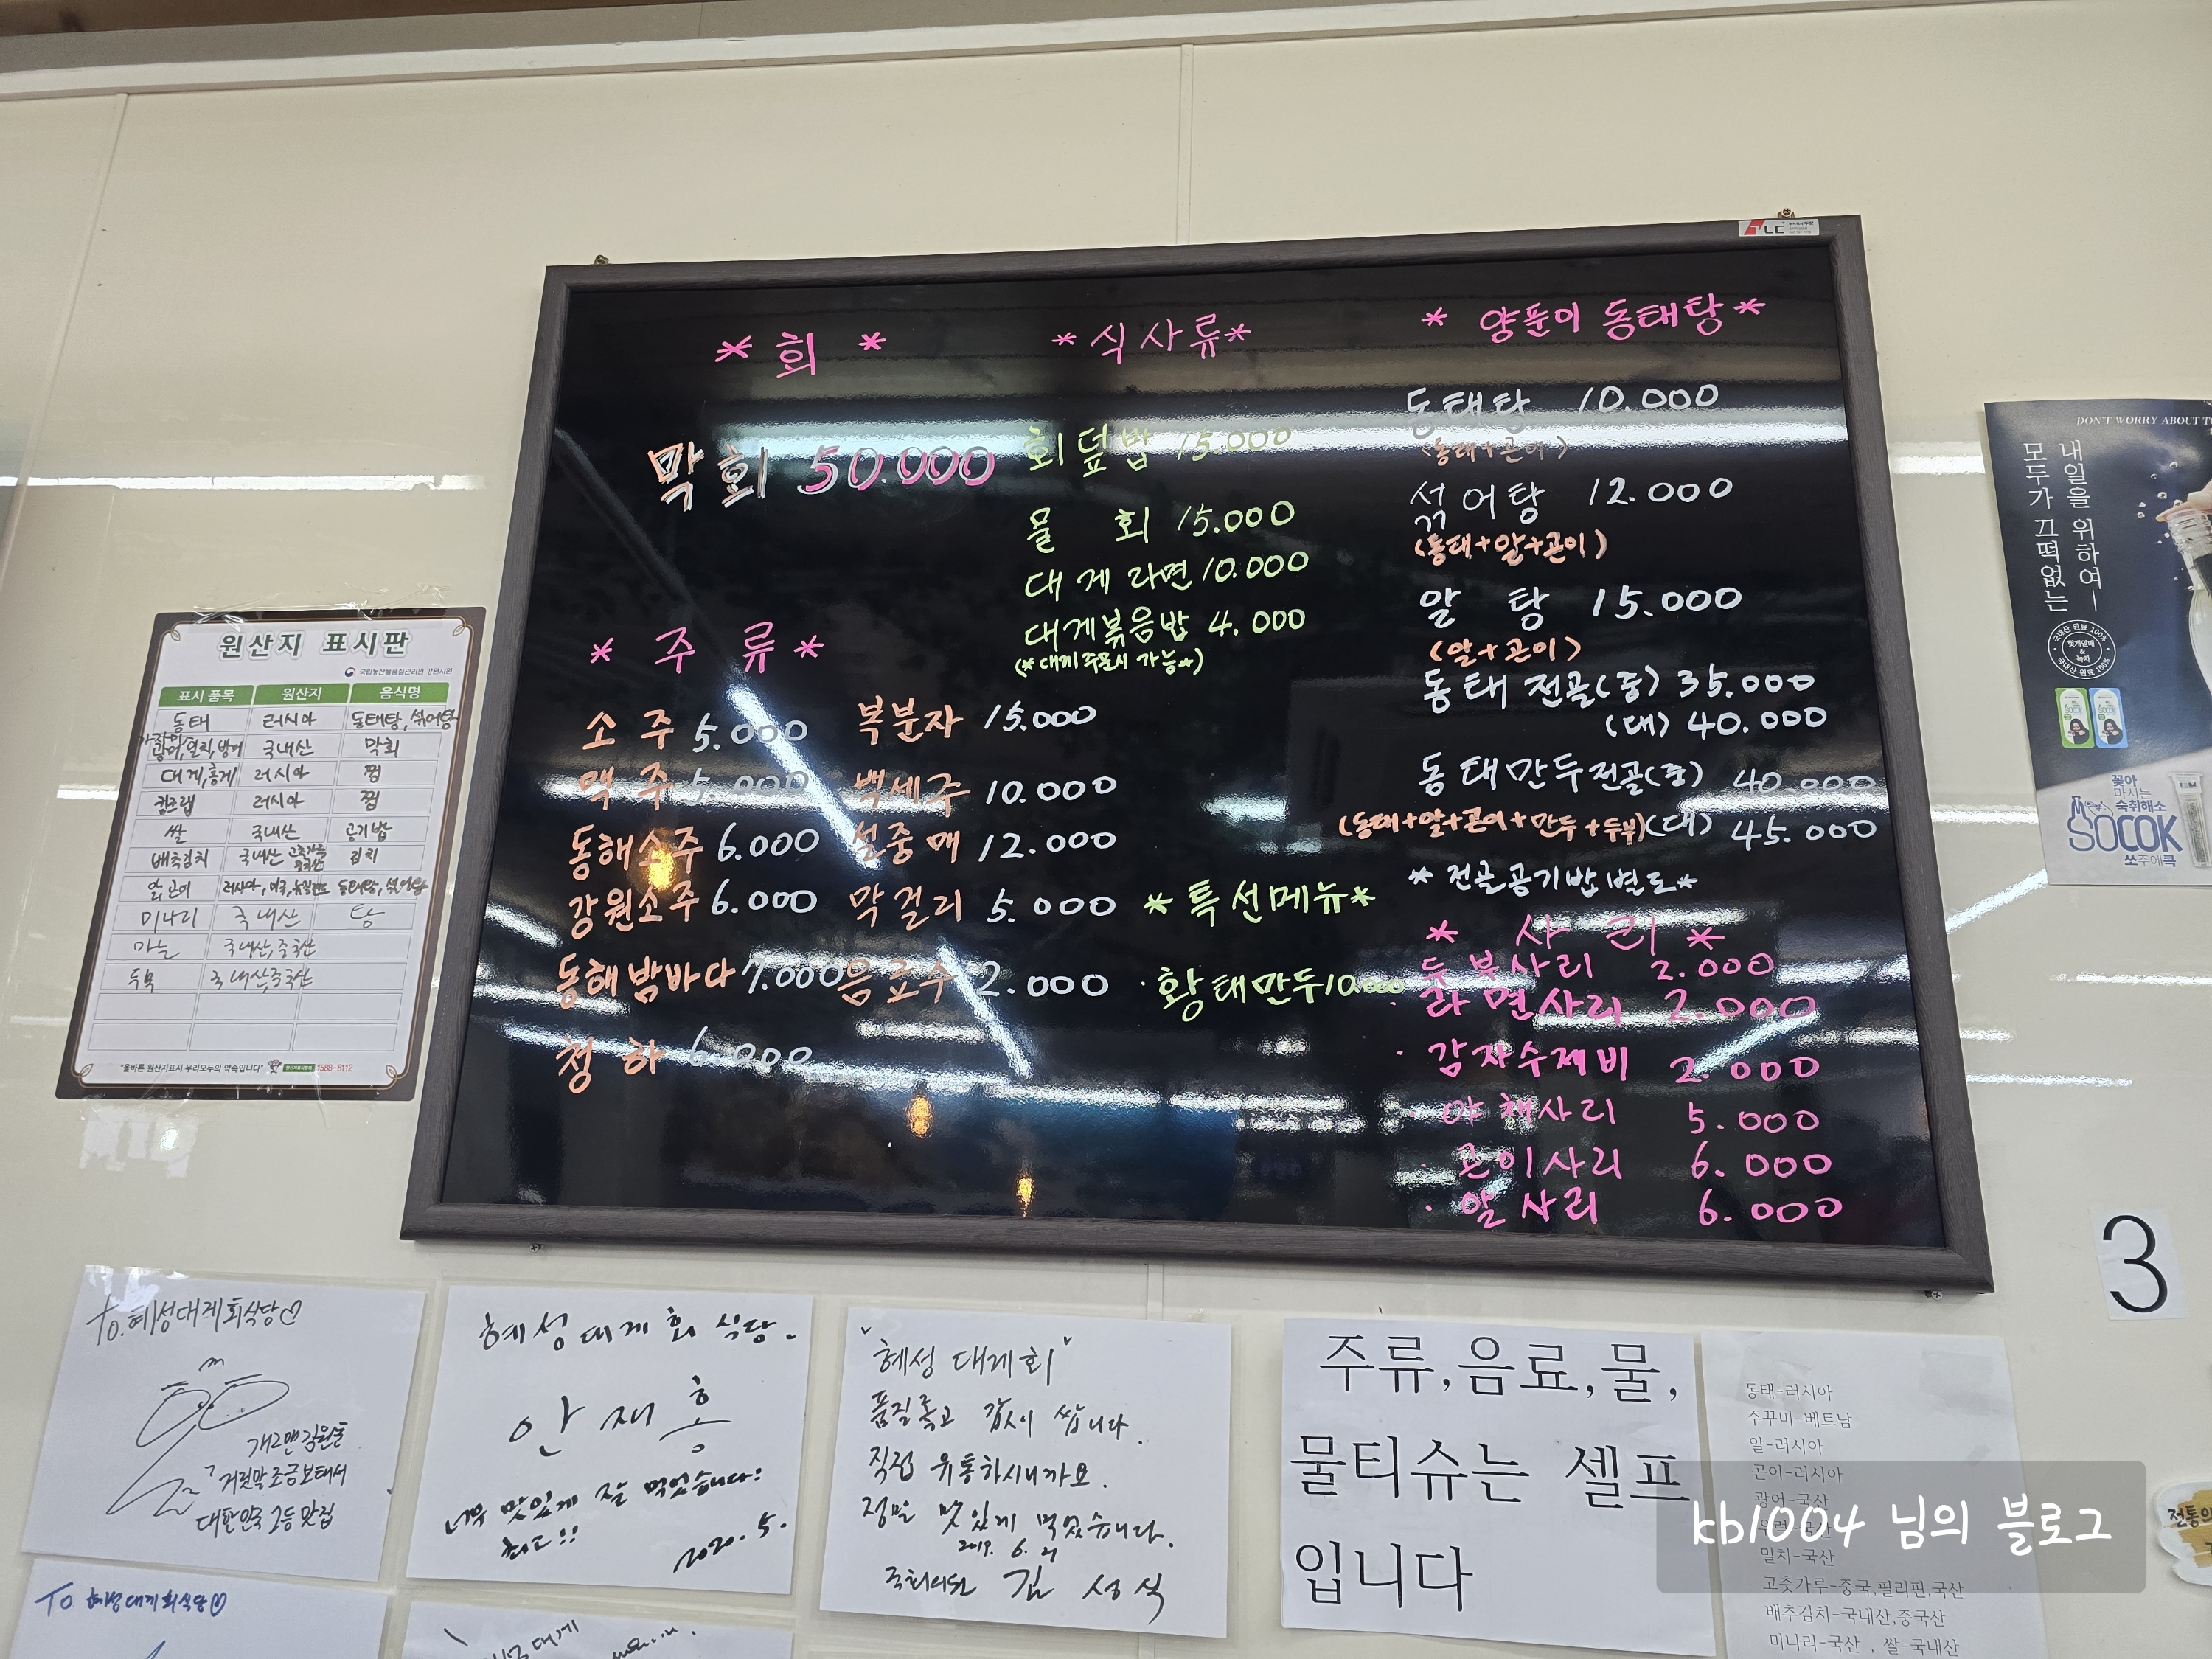 * 회 *
막회 50.000
* 주 류 *
소 주 5.000
맥 주 5.000
동해소주 6.000
강원소주 6.000
동해밤바다 7.000
청 하 6.000
복분자 15.000
백세주 10.000
설중매 12.000
막걸리 5.000
음료수 2.000
*식사류*
회덮밥 15.000
물 회 15.000
대게라면 10.000
대게볶음밥 4.000
(*대게주문시 가능*)
*특선메뉴*
·황태만두 10.000
* 양푼이 동태탕*
동태탕 10.000
(동태+곤이)
섞어탕 12.000
(동태+알+곤이)
알 탕 15.000
(알+곤이)
동태전골(중) 35.000
(대) 40.000
동태만두전골(중) 40.000
(동태+알+곤이+만두+두부)(대) 45.000
*전골공기밥별도*
* 사 리 *
두부사리 2.000
· 라면사리 2.000
· 감자수제비 2.000
· 야채사리 5.000
· 곤이사리 6.000
· 알사리 6.000
LC
원산지 표시판
국립농산물품질관리원 강원지원
표시 품목 원산지 음식명
동태 러시아 동태탕, 섞어탕
국내산 막회
대게,홍게 러시아 찜
킹크랩 러시아 찜
쌀 국내산 공기밥
배추김치 국내산 김치
미나리 국내산 탕
마늘 국내산,중국산
두부 국내산,중국산
"올바른 원산지표시 우리모두의 약속입니다" 1588-8112
DON'T WORRY ABOUT TO
내일을 위하여—
모두가 끄떡없는
국내산 원료 100%
헛개열매
&
녹차
국내산 원료 100%
꽃아
마시는
숙취해소
SOCOK
쏘주에콕
3
To.혜성대게회식당♡
개그맨김원효
거짓말조금보태서
대한민국 2등맛집
혜성대게회 식당.
안재홍
너무 맛있게 잘 먹었습니다!
최고!!
2020. 5.
"혜성 대게회"
품질좋고 값이 쌉니다.
직접 유통하시니까요.
정말 맛있게 먹었습니다.
2019. 6. 21
김 성 식
주류,음료,물,
물티슈는 셀프
입니다
동태-러시아
주꾸미-베트남
알-러시아
곤이-러시아
광어-국산
밀치-국산
고춧가루-중국,필리핀,국산
배추김치-국내산,중국산
미나리-국산 , 쌀-국내산
To 혜성대게회식당♡
kb1004 님의 블로그